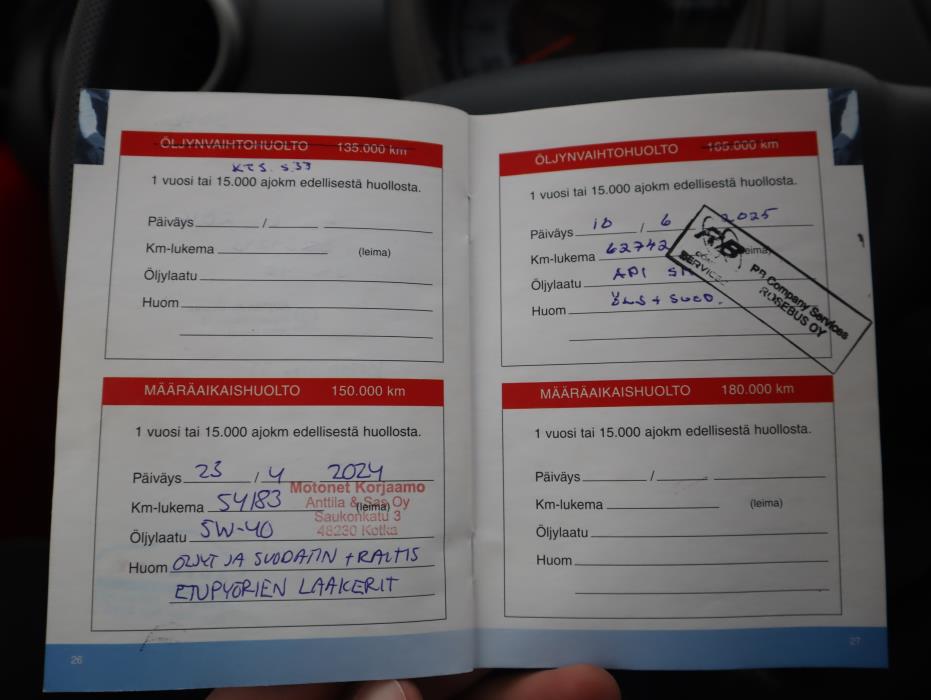 ÖLJYNVAIHTOHUOLTO 135.000 km
KTS. S.37
1 vuosi tai 15.000 ajokm edellisestä huollosta.
Päiväys / 
Km-lukema (leima)
Öljylaatu
Huom
MÄÄRÄAIKAISHUOLTO 150.000 km
1 vuosi tai 15.000 ajokm edellisestä huollosta.
Päiväys 23 / 4 2024
Km-lukema 54183 (leima)
Öljylaatu 5W-40
Huom ÖLJYT JA SUODATIN + RAITIS
ETUPYÖRIEN LAAKERIT
Motonet Korjaamo
Anttila & Sas Oy
Saukonkatu 3
48230 Kotka
26
ÖLJYNVAIHTOHUOLTO 165.000 km
1 vuosi tai 15.000 ajokm edellisestä huollosta.
Päiväys 10 / 6 2025
Km-lukema 62742 (leima)
Öljylaatu API
Huom
RB
SERVICES
PB Company Services
ROSEBUS OY
MÄÄRÄAIKAISHUOLTO 180.000 km
1 vuosi tai 15.000 ajokm edellisestä huollosta.
Päiväys /
Km-lukema (leima)
Öljylaatu
Huom
27